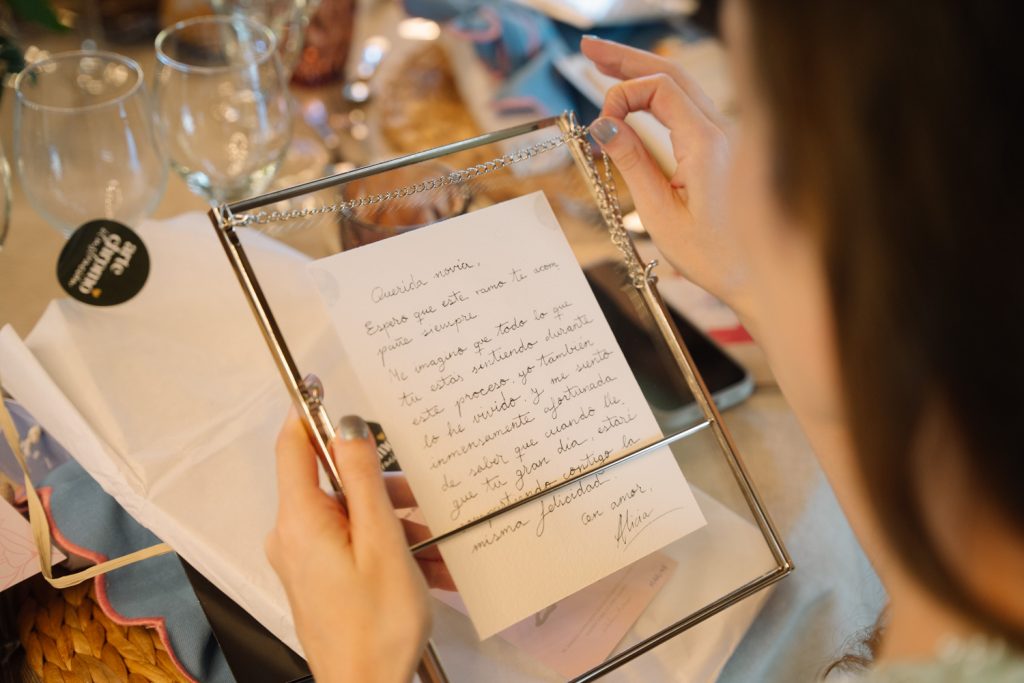 arte
chirivino
Querida novia,
Espero que este ramo te acom
pañe siempre
Me imagino que todo lo que
tu estás sintiendo durante
este proceso, yo también
lo he vivido. Y me siento
inmensamente afortunada
de saber que cuando lle.
gue tu gran día, estaré
contigo la
misma felicidad.
Con amor,
Alicia